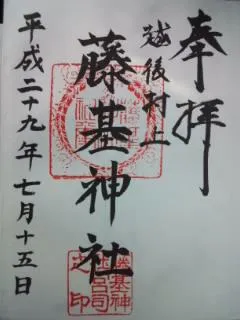 奉拝
越後村上
藤基神社
平成二十九年七月十五日
藤基神
社宮司
之印